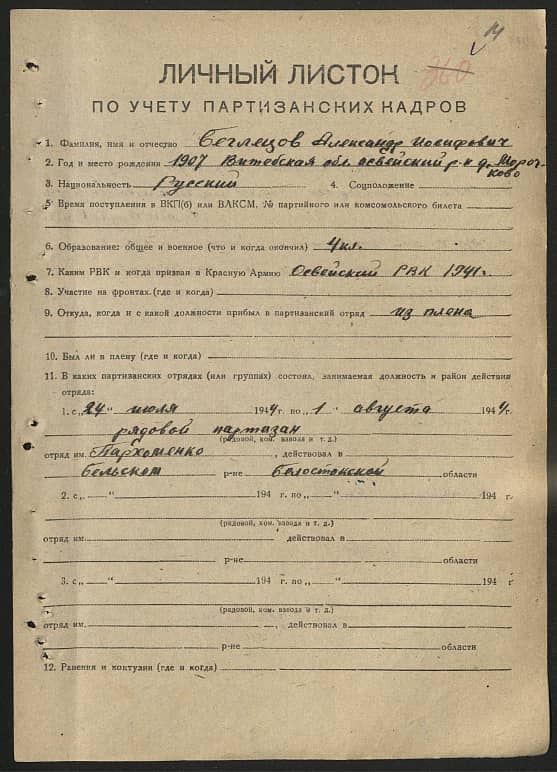 14
360
ЛИЧНЫЙ ЛИСТОК
ПО УЧЕТУ ПАРТИЗАНСКИХ КАДРОВ
1. Фамилия, имя и отчество Беглецов Александр Иосифович
2. Год и место рождения 1907 Витебская обл. Освейский р-н д. Мороч-
ково
3. Национальность Русский 4. Соцположение
5. Время поступления в ВКП(б) или ВЛКСМ, № партийного или комсомольского билета
6. Образование: общее и военное (что и когда окончил) 4 кл.
7. Каким РВК и когда призван в Красную Армию Освейский РВК 1941 г.
8. Участие на фронтах (где и когда)
9. Откуда, когда и с какой должности прибыл в партизанский отряд из плена
10. Был ли в плену (где и когда)
11. В каких партизанских отрядах (или группах) состоял, занимаемая должность и район действия
отряда:
1. с „24“ июля 1944 г. по „1“ августа 1944 г.
рядовой партизан
(рядовой, ком. взвода и т. д.)
отряд им. Пархоменко, действовал в
Бельском р-не Белостокской области
2. с „ “ 194 г. по „ “ 194 г.
(рядовой, ком. взвода и т. д.)
отряд им. действовал в
р-не области
3. с „ “ 194 г. по „ “ 194 г
(рядовой, ком. взвода и т. д.)
отряд им. , действовал в
р-не области
12. Ранения и контузии (где и когда)